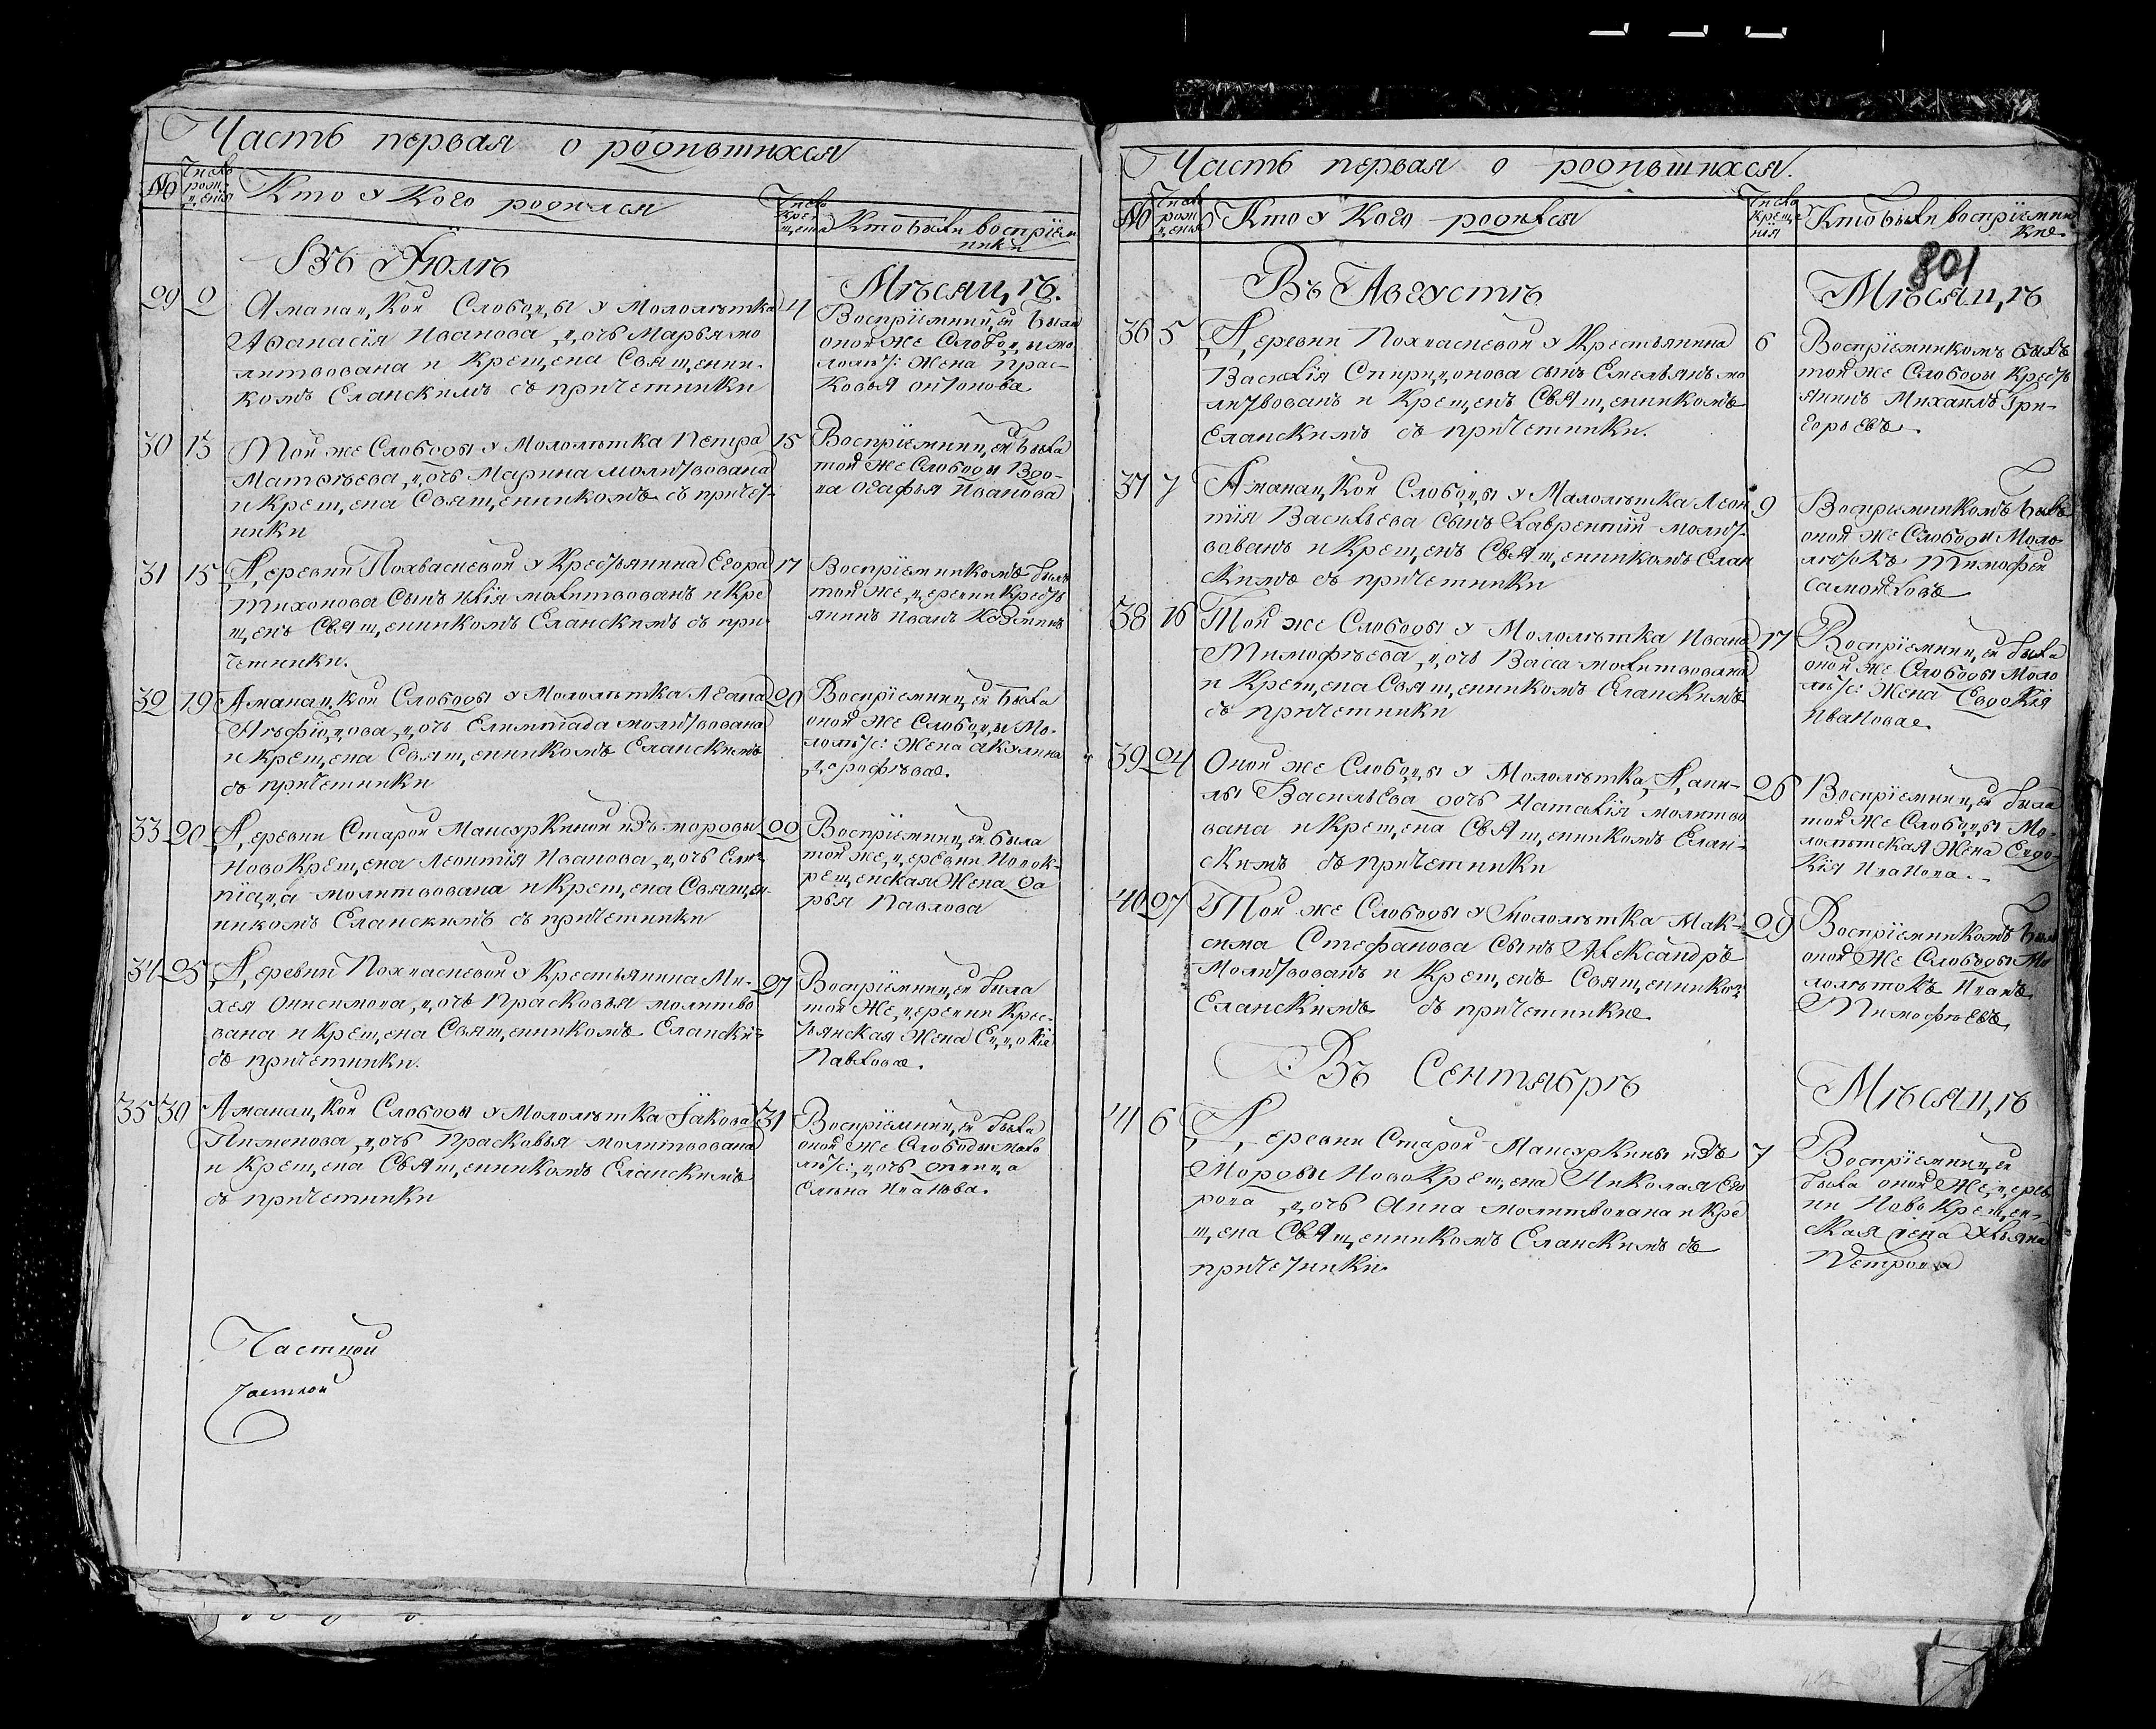 Часть первая о родившихся
№ Число рожденія Кто у Кого родился Число крещенія Кто были воспріемники
Въ Іюлѣ Мѣсяцѣ.
29 2 Аманацкой Слободы у Малолѣтка 4
Аѳанасія Иванова дочь Марья мо
литвована и Крещена Священни-
комъ Еланскимъ съ причетники
Воспріемницей была
оной же Слободы мо
лолѣт: Жена Прас-
ковья антонова
30 13 Той же Слободы у Молольтка Петра 15
Матвѣева дочь Марина молитвована
и Крещена Священникомъ съ причет-
ники
Воспріемницей была
той же Слободы Вдо-
ва Агафья Иванова
31 15 Деревни Похвасневой у Крестьянина Егора 17
Тихонова Сынъ Илія молитвованъ и Кре
щенъ Священникомъ Еланскимъ съ при
четники.
Воспріемникомъ былъ
той же деревни Кресть
янинъ Иванъ Козминъ
32 19 Аманацкой Слободы у Молольтка 20
дочь Елимпіада молитвована
и Крещена Священникомъ Еланскимъ
съ причетники
Воспріемницей была
оной же Слободы Мо-
лолѣт: Жена акулина
дорофѣва.
33 20 Деревни Старой Мансуркиной изъ мордвы 22
Новокрещена Леонтія Иванова дочь Елим
піада молитвована и Крещена Священ-
никомъ Еланскимъ съ причетники
Воспріемницей была
той же деревни Новок-
рещенская Жена Да
рья Павлова
34 25 Деревни Похвасневой у Крестьянина Ми- 27
хея Онисимова дочь Прасковья молитво
вана и Крещена Священникомъ Елански
съ причетники.
Воспріемницей была
той Же деревни Крес-
тьянская Жена Евдокія
Павлова.
35 30 Аманацкой Слободы у Молольтка Іакова 31
Пименова дочь Прасковья молитвована
и Крещена Священникомъ Еланскимъ
съ причетники
Воспріемницей была
оной Же Слободы мало
лѣт: дочь девица
Елена Иванова.
Частной
частной
Часть первая о родившихся.
№ Число рожденія Кто у Кого родился Число Крещенія Кто были воспріемники
801
Въ Августѣ Мѣсяцѣ
36 5 Деревни Похвасневой у Крестьянина 6
Василія Спиридонова сынъ Емельянъ мо
литвованъ и Крещенъ Священникомъ
Еланскимъ съ причетники.
Воспріемникомъ былъ
той же Слободы Кресть
янинъ Михаилъ Гри-
горьевъ.
37 7 Аманацкой Слободы у Малолѣтка Леон 9
тія Васильева Сынъ Лаврентій молит-
вованъ и Крещенъ Священникомъ Елан
скимъ съ причетники
Воспріемникомъ былъ
оной же Слободы Моло
лѣтокъ Тимофей
Самойловъ
38 16 Той же Слободы у Молольтка Ивана 17
Тимофѣева дочь Васса молитвована
и Крещена Священникомъ Еланскимъ
съ причетники
Воспріемницей была
оной же Слободы Моло
лѣт: Жена Евдокія
Иванова
39 24 Оной же Слободы у Молольтка Дани- 26
лы Васильева дочь Наталія молитво
вана и Крещена Священникомъ Елан-
скимъ съ причетники
Воспріемницей была
той же Слободы Мо-
лолѣтская Жена Евдо-
кія Иванова.
40 27 Той же Слободы у Молольтка Мак- 29
сима Стефанова Сынъ Александръ
Молитвованъ и Крещенъ Священником
Еланскимъ съ причетники
Воспріемникомъ был
оной Же Слободы Мо
лолѣтокъ Иванъ
Тимофѣевъ
Въ Сентябрѣ Мѣсяцѣ
41 6 Деревни Старой Мансуркины изъ 7
Мордвы Новокрещена Николая Его
рова дочь Анна молитвована и Кре
щена Священникомъ Еланскимъ съ
причетники
Воспріемницей
была оной Же дерев
ни Новокрещен-
ская Жена Ульяна
Петрова